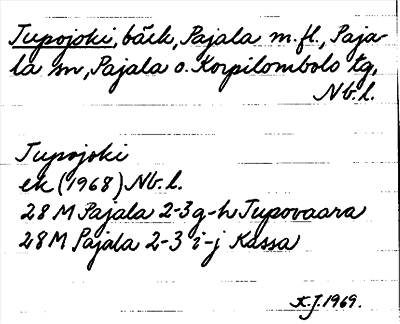 Tupojoki, bäck, Pajala m.fl., Paja-
la sn, Pajala o. Korpilombolo tg,
Nb.l.
Tupojoki
ek (1968) Nb.l.
28M Pajala 2-3 g-h Tupovaara
28M Pajala 2-3 i-j Kassa
K.J. 1969.